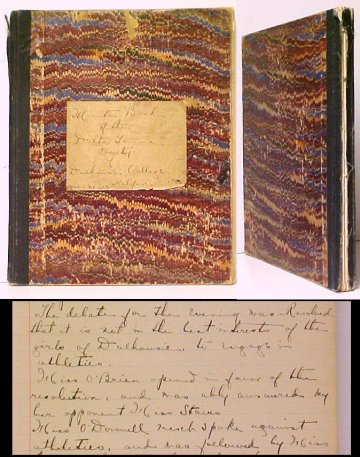 Minute Book
of the
Delta Gamma
Society
Dalhousie College
Halifax
The debate for the evening was Resolved
that it is not in the best interests of the
girls of Dalhousie to engage in
athletics.
Miss O'Brien opened in favor of the
resolution, and was ably answered by
her opponent Miss Stairs
Miss O'Donnell next spoke against
athletics, and was followed by Miss